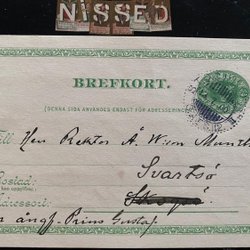 NISSED
BREFKORT.
(DENNA SIDA ANVÄNDES ENDAST FÖR ADRESSERING
Till Herr Rektor Å. W:son Munthe
Svartsö
Postad:
Skogsö
Adressort:
ångf. Prins Gustaf.